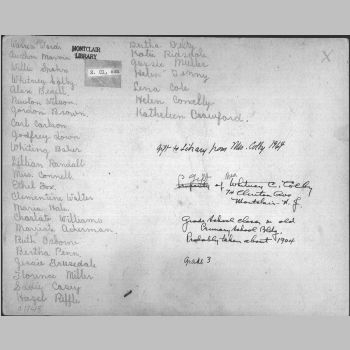 Marvin
Willis Spohn
Whitney Colby
Alex Begell
Newton Wilson
Gordon Brown
Carl Carlson
Godfrey
Whiting Baker
Lillian Randall
Miss Connell
Ethel Box.
Clementine Walter
Maria Hale
Charlotte Williams
Marria Ackerman
Ruth Osborne
Bertha Penn.
Jessie
Florence Miller
Sadie Casey
Hazel Riffle
MONTCLAIR
LIBRARY
Bertha
Katie Ridsdale
Gussie Muller
Helen Denny
Lena Cole
Helen Connelly
Katheleen Crawford.
X
Gift to Library from Mrs. Colby 1964
gift Mrs
property of Whitney C. Colby
74 Clinton Ave
Montclair N. J
Grade School class in old
Primary School Bldg.
Probably taken about 1904
Grade 3